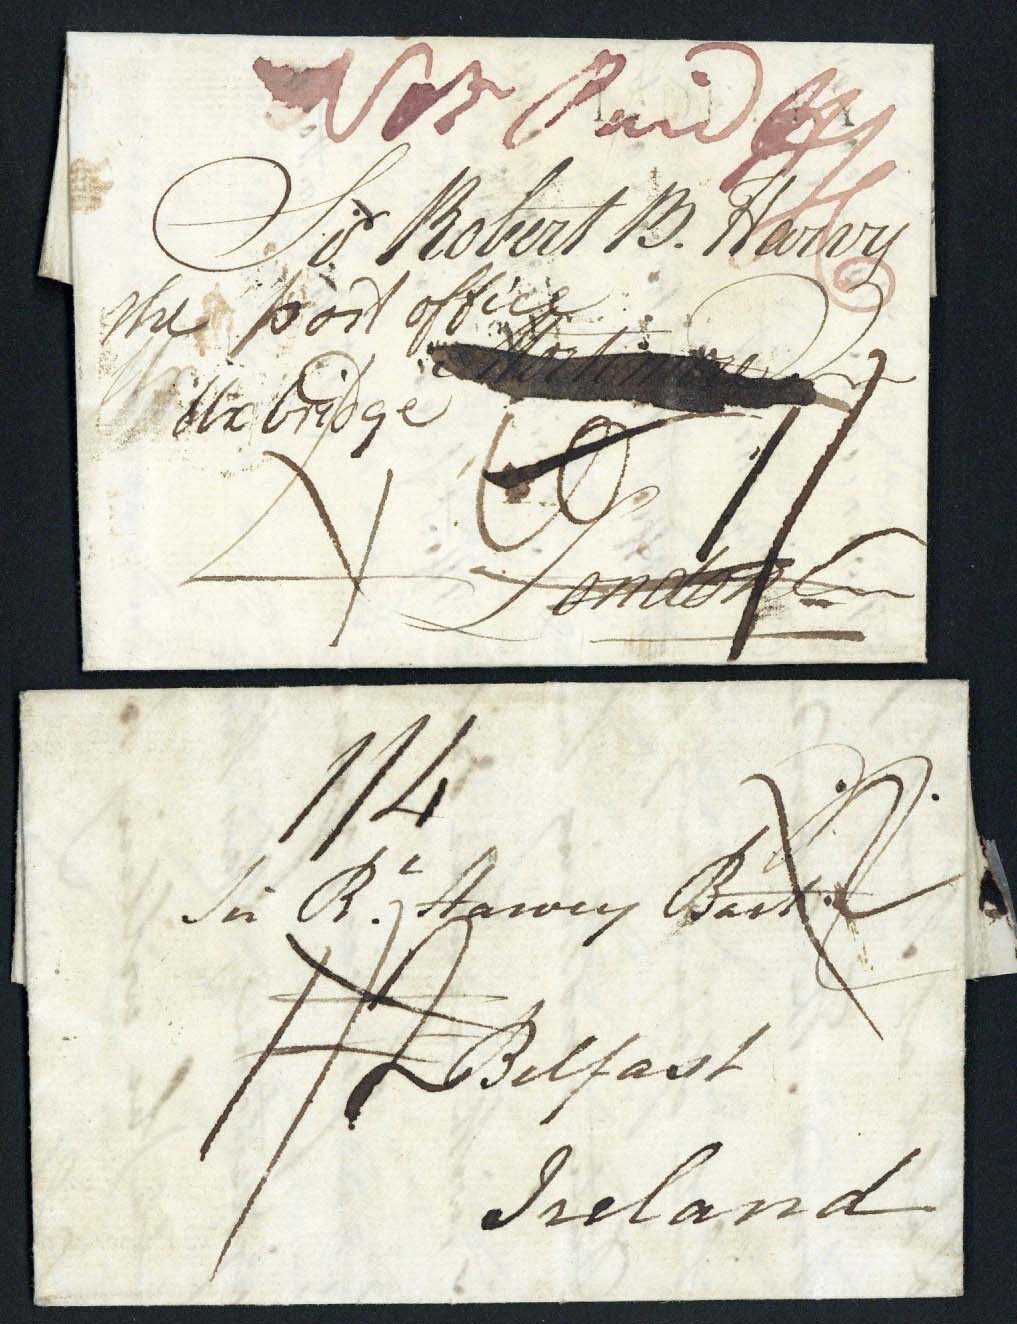 Not Paid
Sir Robert B. Harvy
the post office
Uxbridge
London
1/4
Sir Rt. Harvey Bart.
1/2
Belfast
Ireland